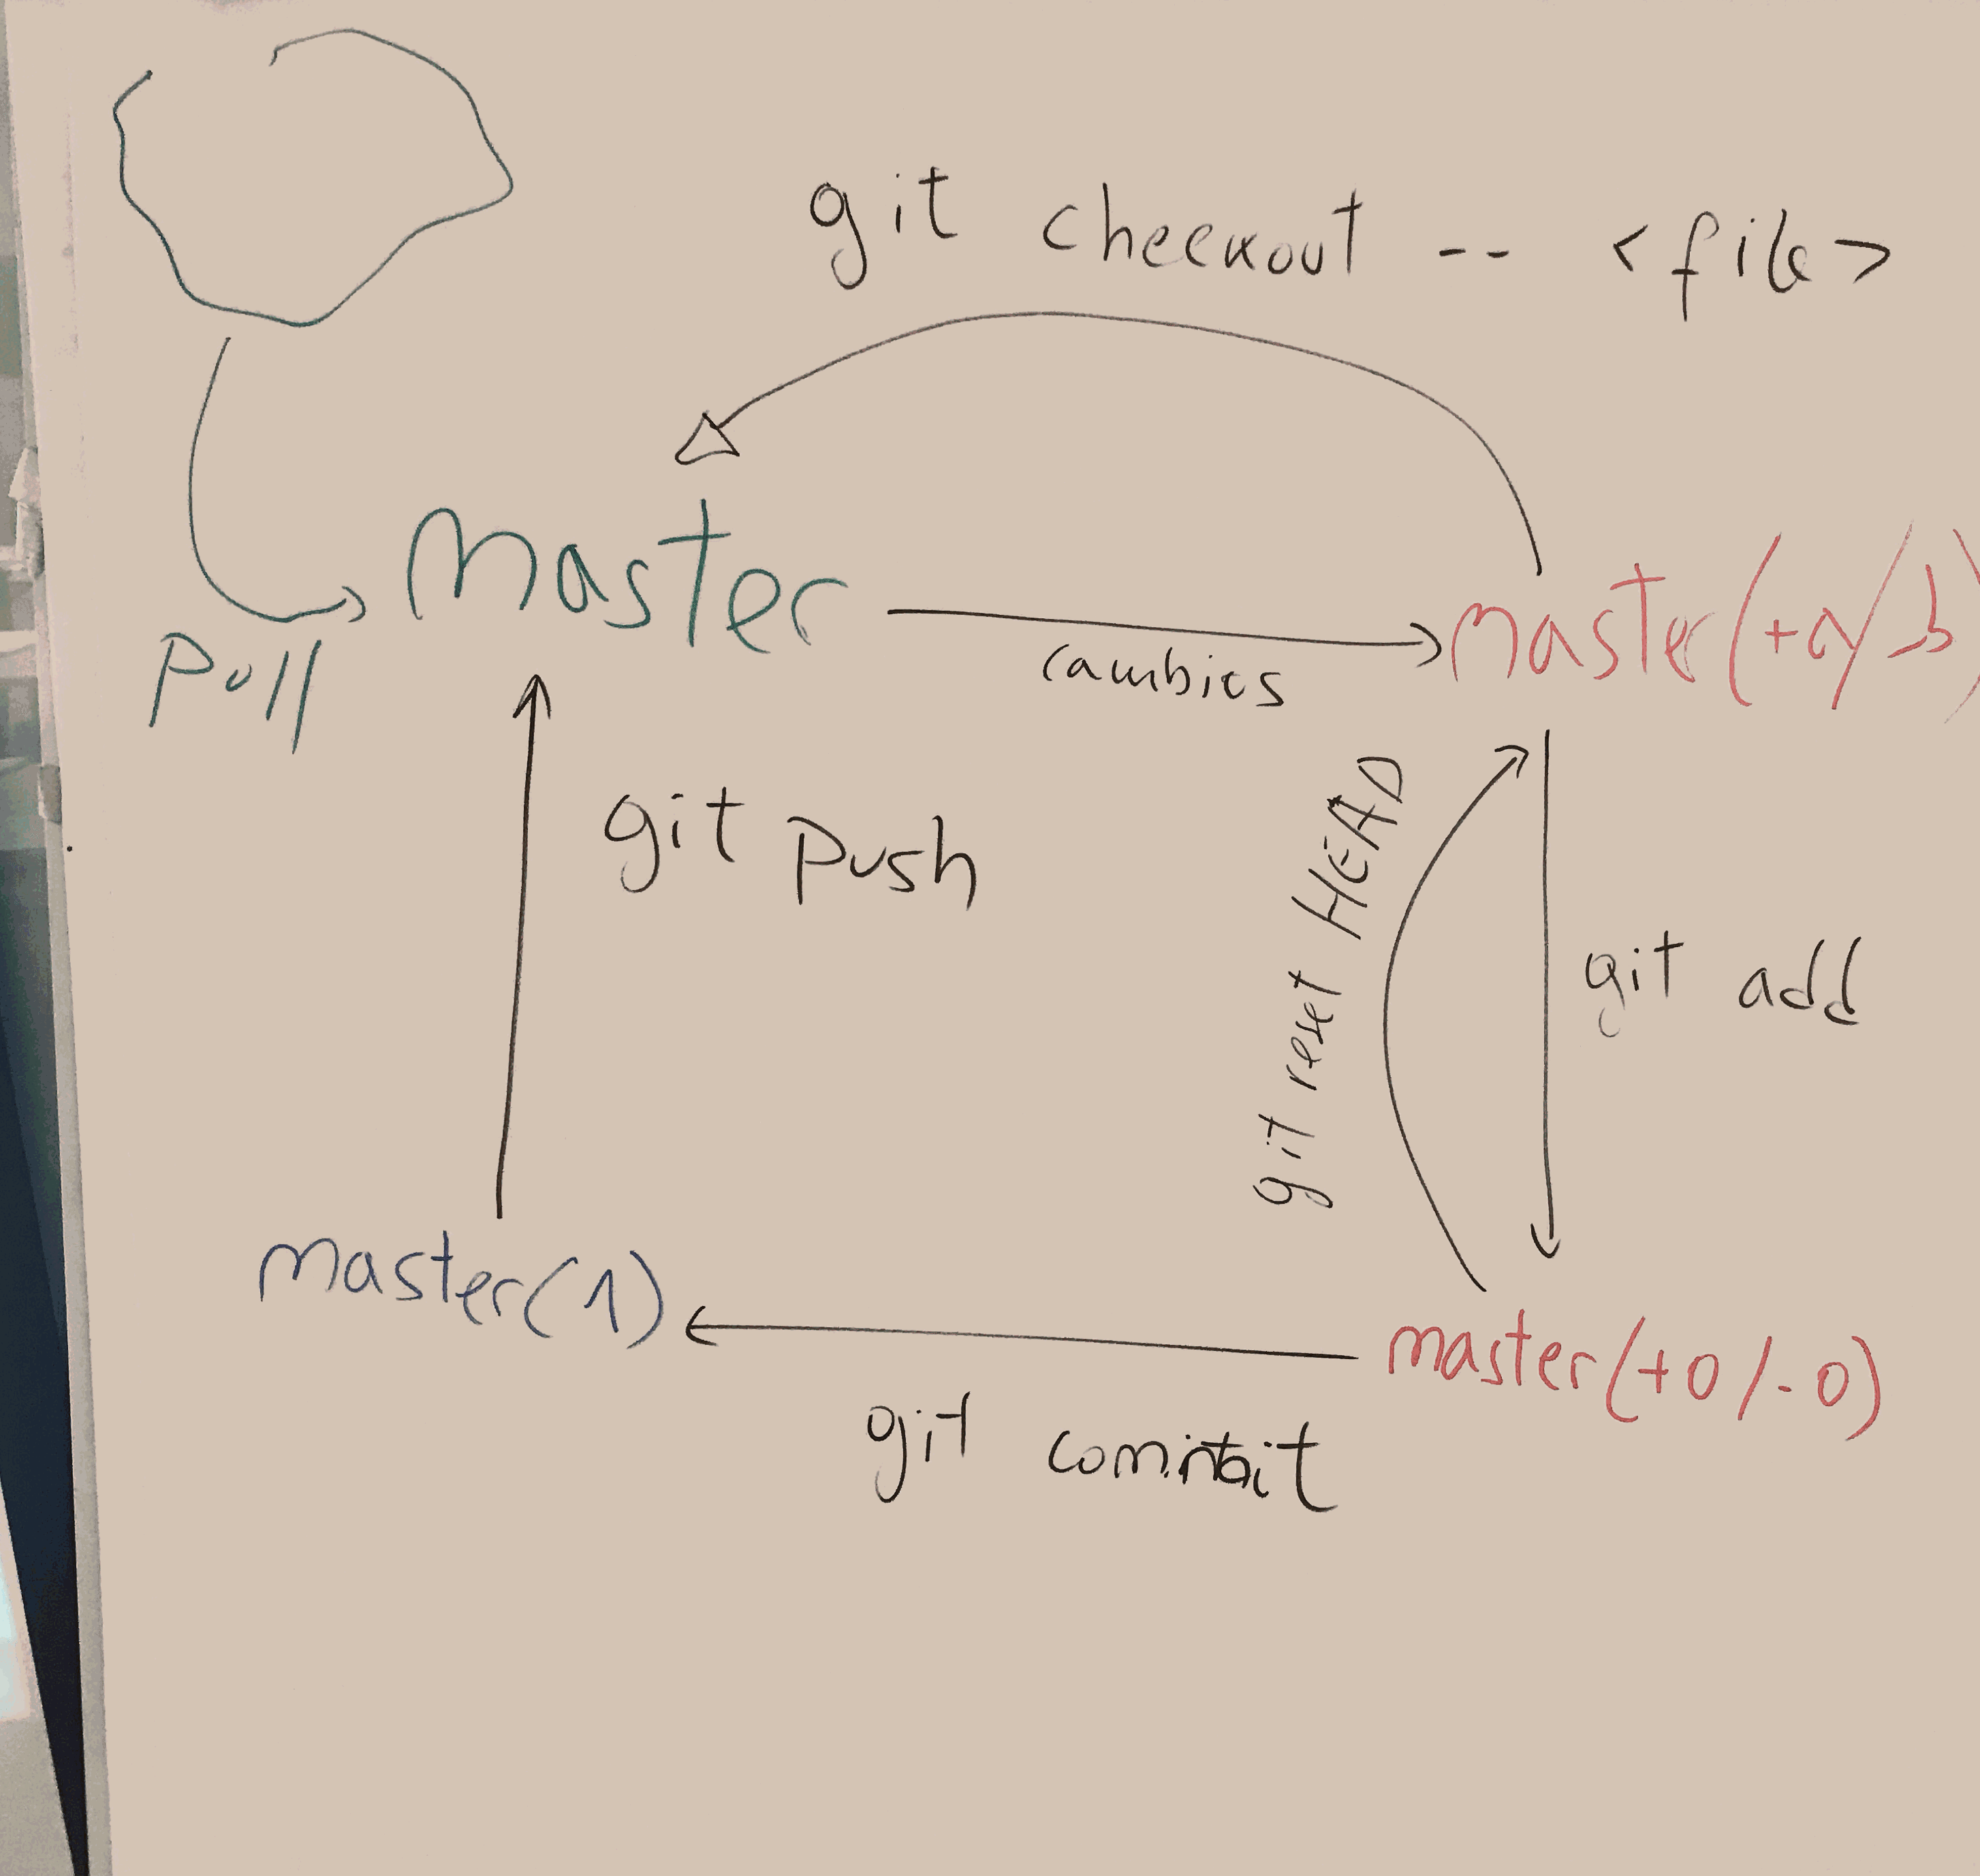 git checkout -- <file>
master
cambios
master(+a/-b)
Pull
git push
git reset HEAD
git add
master(1)
master(+0/-0)
git commit